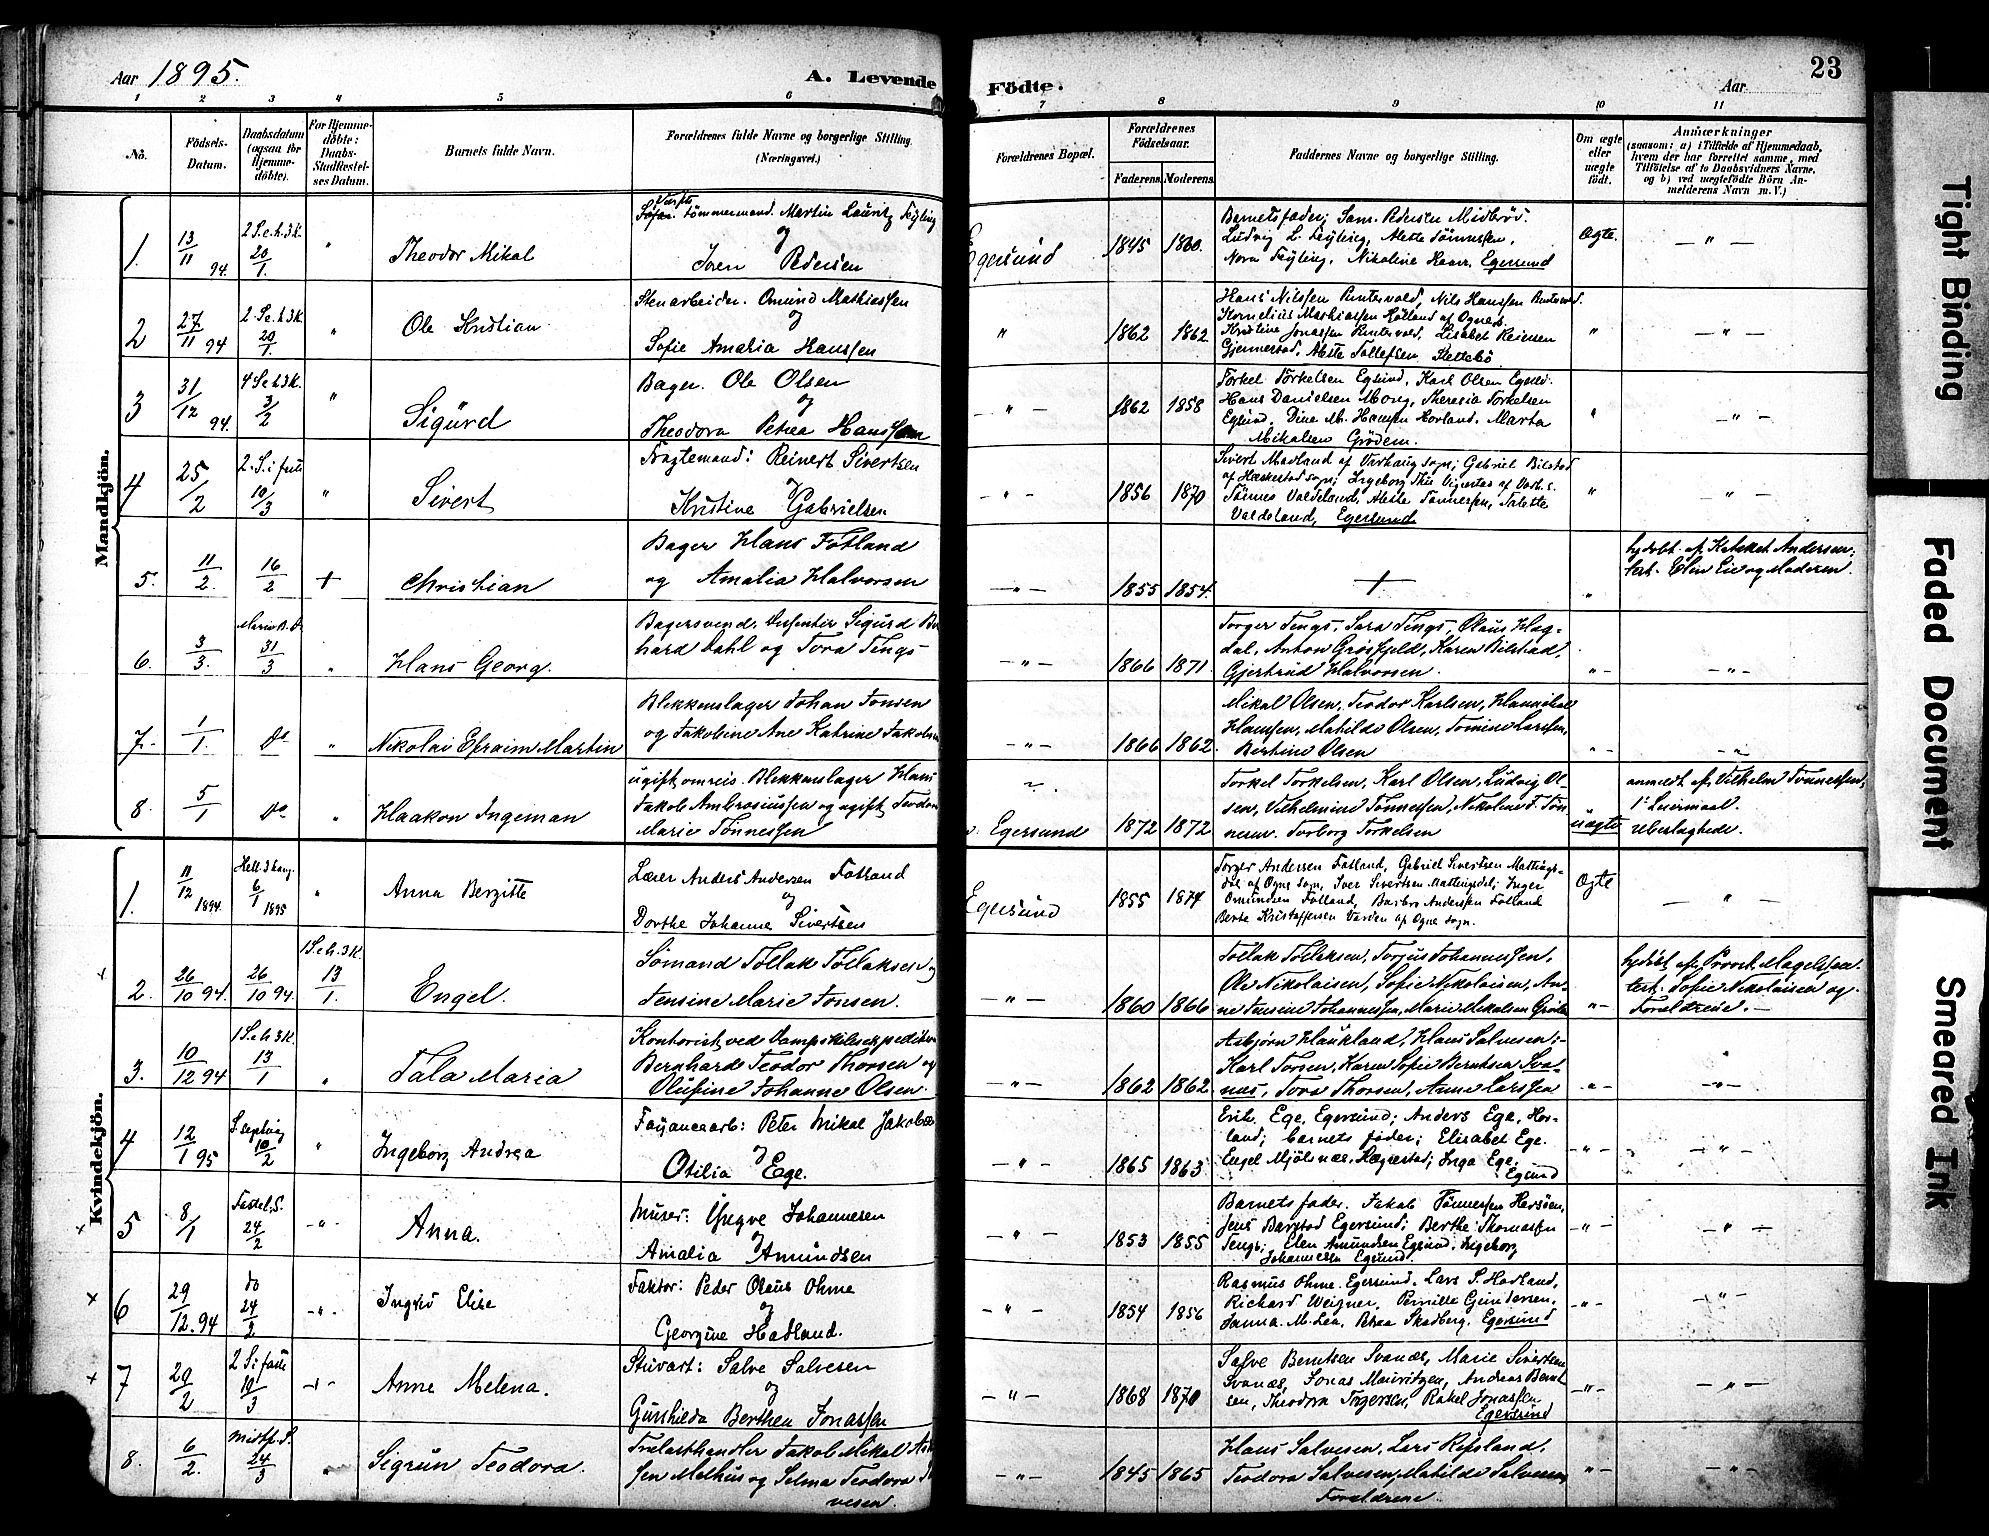 Aar 1895.
A. Levende
Födte.
Aar
23
1 2 3 4 5 6 7 8 9 10 11
No.
Födsels-Datum.
Daabsdatum (ogsaa for Hjemmedöbte).
For Hjemmedöbte: Daabs-Stadfæstelses Datum.
Barnets fulde Navn.
Forældrenes fulde Navne og borgerlige Stilling. (Næringsvei.)
Forældrenes Bopæl.
Forældrenes Födselsaar.
Faderens. Moderens.
Faddernes Navne og borgerlige Stilling.
Om ægte eller uægte födt.
Anmærkninger
(saasom: a) i Tilfælde af Hjemmedaab, hvem der har forrettet samme, med Tilföielse af to Daabsvidners Navne, og b) ved uægtefödte Börn Anmelderens Navn m. V.)
Mandkjön.
1. 13/11 94. 2 S. e. h. 3 K. 20/1. " Theodor Mikal
Tömmermand. Martin Lauritz Feyling
og
Pedersen
Egersund 1845 1860.
Barnets fader; Sam. Pedersen Midbröd.
Ludvig L. Feyling, Aleste Tönnessen,
Nora Feyling, Nikoline Haar. Egersund
Ægte. — " —
2 27/11 94 2 S. e. h. 3 K. 20/1. " Ole Kristian
Stenarbeider. Omund Mathiassen
og
Sofie Amalia Hanssen
" 1862 1862
Hans Nilssen Puntervold, Nils Hanssen Puntervold.
Kornelius Mathiassen Hetland af Ogne s.
Kristine Jonassen Puntervold, Lisabet Reiersen
Gjermestad. Aleste Tollefsen Slettebö
" — " —
3 31/12 94. 4 S. e. h. 3 K. 3/2 " Sigurd
Bager. Ole Olsen
og
Theodora Petrea Hanssen
— " — 1862 1858
Torkel Torkelsen Egsund, Karl Olsen Egsd.
Hans Danielsen Mong, Theresia Torkelsen
Egsund. Dine M. Hansen Hovland. Marta
Mikalsen Grödem.
" — " —
4 25/2 2. S. i faste 10/3 " Sivert
Fragtemand: Reinert Sivertsen
og
Kristine Gabrielsen
— " — 1856 1870
Sivert Madland af Varhaug sogn; Gabriel Bilstad
af Heskestad sogn; Ingeborg Thu
Tönnes Valdeland, Aleste Tönnessen, Talette
Valdeland, Egersund
" — " —
5. 11/2. 16/2 + Christian
Bager Hans Fotland
og Amalia Halvorsen
— " — 1855 1854.
+
"
hjdöbt. af Kateket Andersen;
test. Elen Eie og Moderen.
6. 3/3. Mariæ B. D. 31/3 " Hans Georg.
Bagersvend. Sigurd
hard Dahl og Tora Tengs
— " — 1866 1871.
Torger Tengs, Sara Tengs, Olaus Hag-
dal, Anton Grösfjeld, Karen Bilstad,
Gjertrud Halvorsen.
" — — " —
7. 1/1. Do " Nikolai Efraim Martin
Blikkenslager Johan Jonsen
og Jakobine Ane Katrine Jakobsen
— " — 1866 1862.
Mikal Olsen, Teodor Karlsen, Hanniball
Hanssen, Matilde Olsen, Tomine Larssen,
Bertine Olsen
— " —
8. 5/1 Do " Haakon Ingeman
ugift omreis. Blikkenslager Hans
Jakob Ambrosiussen og ugift Teodora
Marie Tönnessen
Egersund 1872 1872
Torkel Torkelsen, Karl Olsen, Ludvig Ol-
sen, Vilhelmine Tönnessen, Nikoline F. Tön-
nesen. Torborg Torkelsen
uægte
anmeldt af Vilhelm Tönnessen,
1ste Leiermaal.
Kvindekjön.
1. 11/12 1894. Hell. 3 Kong. 6/1 1895 " Anna Bergitte
Lærer Anders Andersen Fotland
og
Dorthe Johanne Sivertsen
Egersund 1855 1874
Torger Andersen Fotland, Gabriel Sivertsen Mattings-
dal af Ogne sogn, Iver Sivertsen Mattingsdal; Inger
Omundsen Fotland, Barbro Andersen Fotland
Berte Kristoffersen Varden af Ogne sogn.
Ægte — " —
2. 26/10 94. 26/10 94. 1 S. e. h. 3 K. 13/1. Engel.
Sömand Tollak Tollaksen og
Jensine Marie Jonsen.
— " — 1860 1866
Tollak Tollaksen, Torjus Johannessen,
Ole Nikolaisen, Sofie Nikolaisen, An-
ne Jensine Johannessen, Marie Mikalsen
" —
hjdöbt af Provst Magelssen.
test. Sofie Nikolaisen og
Forældrene. —
3. 10/12 94 1 S. e. h. 3 K. 13/1 " Tala Maria
Kontorist ved Dampskibsexpeditionen
Bernhard Teodor Thorsen og
Olufine Johanne Olsen.
— " — 1862 1862.
Asbjörn Haukland, Hans Salvesen;
Karl Torsen, Karen Sofie Berntsen Sva-
næs, Tora Thorsen, Anne Larssen
— " — — " —
4 12/1 95 S. septuag 10/2 " Ingeborg Andrea
Fajancearb: Peter Mikal Jakobsen
og
Otilia Ege.
— " — 1865 1863
Erik Ege, Egersund; Anders Ege, Hov-
land; barnets fader; Elisabet Ege.
Engel Mjölsnæs, Hægrestad; Inga Ege,
Egsund
— " — — " —
5 8/1 Fastel. S. 24/2 — " — Anna.
Murer: Yngve Johannesen
og
Amalia Amundsen
— " — 1853 1855
Barnets fader. Jakob Tönnessen
Jens Barstad Egersund; Berthe Thomassen
Tengs; Elen Amundsen Egsund, Ingeborg
Johannesen Egsund.
— " — — " —
6 29/12. 94 do 24/2 — " — Ingrid Elise
Faktor: Peder Olaus Ohme
og
Georgine Hadland.
— " — 1854 1856
Rasmus Ohme. Egersund. Lars S. Hadland,
Richard Weigner. Pernille Gundersen.
Janna. M. Lea, Petrea Skadberg. Egersund
— " — — " —
7 20/2 2 S. i faste 10/3 — " — Anne Melena.
Stuvart: Salve Salvesen
og
Gunhilda Berthea Jonassen
— " — 1868 1870
Salve Berntsen Svanæs, Marie Sivertsen
Svanæs, Jonas Mauritzen, Andreas Bernt-
sen, Theodora Torgersen, Rakel Jonassen
Egersund
— " — — " —
8. 6/2. Midtf. S. 24/3 " Sigrun Teodora.
Trelasthandler Jakob Mikal
sen Melhus og Selma Teodora
vesen.
— " — 1845 1865
Hans Salvesen, Lars Repsland,
Teodora Salvesen, Matilde Salvesen
Forældrene
" — — " —
Tight Binding
Faded Document
Smeared Ink